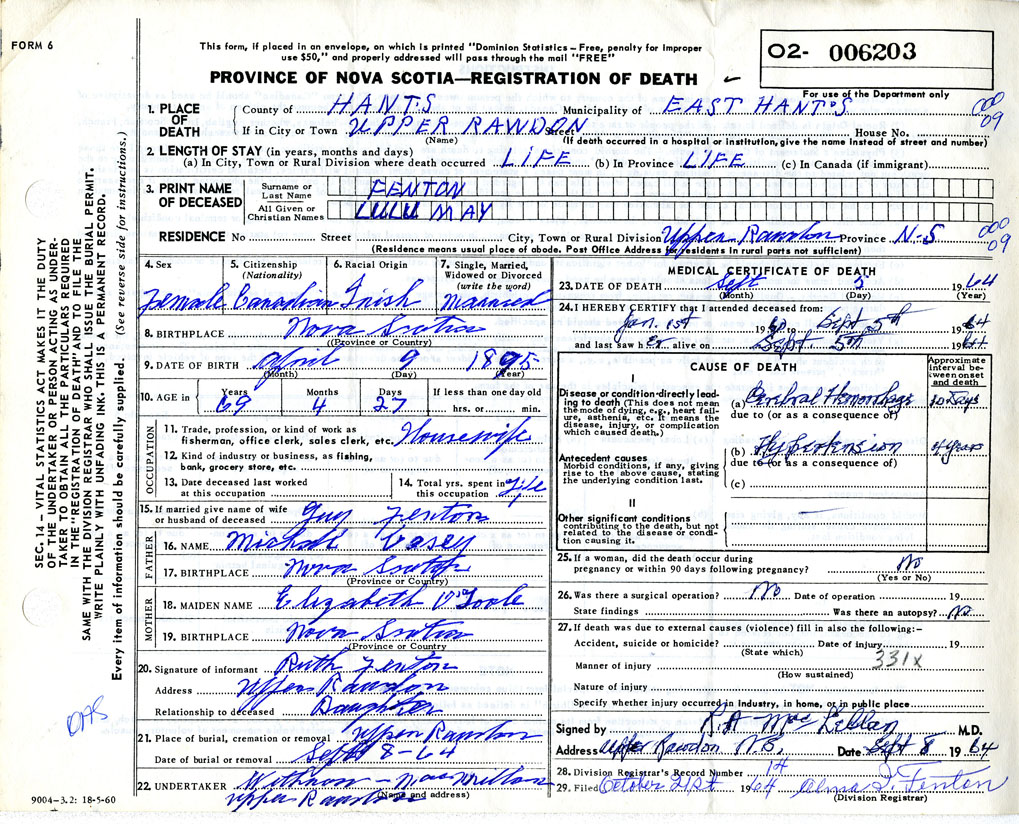 FORM 6
This form, if placed in an envelope, on which is printed "Dominion Statistics – Free, penalty for improper
use $50," and properly addressed will pass through the mail "FREE"
PROVINCE OF NOVA SCOTIA—REGISTRATION OF DEATH
O2- 006203
For use of the Department only
1. PLACE OF DEATH
County of HANTS Municipality of EAST HANTS
000 09
If in City or Town UPPER RAWDON Street House No.
(Name) (If death occurred in a hospital or institution, give the name instead of street and number)
2. LENGTH OF STAY (in years, months and days)
(a) In City, Town or Rural Division where death occurred LIFE (b) In Province LIFE (c) In Canada (if immigrant)
3. PRINT NAME OF DECEASED
Surname or Last Name FENTON
All Given or Christian Names LULU MAY
RESIDENCE No Street City, Town or Rural Division Upper Rawdon Province N-S
000 09
(Residence means usual place of abode. Post Office Address for residents in rural parts not sufficient)
4. Sex Female
5. Citizenship (Nationality) Canadian
6. Racial Origin Irish
7. Single, Married, Widowed or Divorced (write the word) Married
8. BIRTHPLACE Nova Scotia
(Province or Country)
9. DATE OF BIRTH April 9 1895
(Month) (Day) (Year)
10. AGE in Years 69 Months 4 Days 27 If less than one day old
hrs. or min.
OCCUPATION
11. Trade, profession, or kind of work as
fisherman, office clerk, sales clerk, etc. Housewife
12. Kind of industry or business, as fishing,
bank, grocery store, etc.
13. Date deceased last worked
at this occupation
14. Total yrs. spent in
this occupation Life
15. If married give name of wife
or husband of deceased Guy Fenton
FATHER
16. NAME Michael Casey
17. BIRTHPLACE Nova Scotia
(Province or Country)
MOTHER
18. MAIDEN NAME Elizabeth O'Toole
19. BIRTHPLACE Nova Scotia
(Province or Country)
20. Signature of informant Ruth Fenton
Address Upper Rawdon
Relationship to deceased Daughter
21. Place of burial, cremation or removal Upper Rawdon
Date of burial or removal Sept 8-64
22. UNDERTAKER
Upper Rawdon
(Name and address)
9004-3.2: 18-5-60
MEDICAL CERTIFICATE OF DEATH
23. DATE OF DEATH Sept 5 1964
(Month) (Day) (Year)
24. I HEREBY CERTIFY that I attended deceased from:
Jan. 1st 1960 to Sept 5th 1964
and last saw her alive on Sept 5th 1964
CAUSE OF DEATH
Approximate interval between onset and death
I
Disease or condition directly leading to death (This does not mean the mode of dying, e.g., heart failure, asthenia, etc. It means the disease, injury, or complication which caused death.)
(a) Cerebral Hemorrhage 10 days
due to (or as a consequence of)
Antecedent causes
Morbid conditions, if any, giving rise to the above cause, stating the underlying condition last.
(b) Hypertension 4 years
due to (or as a consequence of)
(c)
II
Other significant conditions
contributing to the death, but not related to the disease or condition causing it.
25. If a woman, did the death occur during
pregnancy or within 90 days following pregnancy? No
(Yes or No)
26. Was there a surgical operation? No Date of operation 19
State findings Was there an autopsy? No
27. If death was due to external causes (violence) fill in also the following:–
Accident, suicide or homicide? Date of injury 19
(State which)
331x
Manner of injury
(How sustained)
Nature of injury
Specify whether injury occurred in Industry, in home, or in public place
Signed by M.D.
Address Upper Rawdon Date Sept 8 1964
28. Division Registrar's Record Number 14
29. Filed October 21st 1964 Alma I. Fenton
(Division Registrar)
SEC. 14 – VITAL STATISTICS ACT MAKES IT THE DUTY
OF THE UNDERTAKER OR PERSON ACTING AS UNDER-
TAKER TO OBTAIN ALL THE PARTICULARS REQUIRED
IN THE "REGISTRATION OF DEATH" AND TO FILE THE
SAME WITH THE DIVISION REGISTRAR WHO SHALL ISSUE THE BURIAL PERMIT.
WRITE PLAINLY WITH UNFADING INK. THIS IS A PERMANENT RECORD.
Every item of information should be carefully supplied. (See reverse side for instructions.)